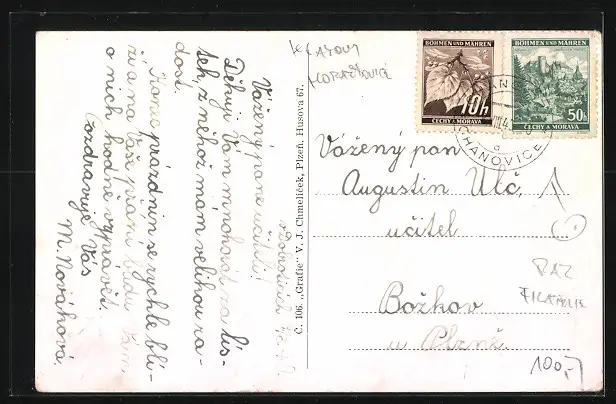 Vážený pane učiteli!
Děkuji Vám mnohokrát za lís-
tek, z něhož mám velikou ra-
dost.
Konec prázdnin se rychle blí-
ží a na Vaše přání budu Vám
o nich hodně vyprávět.
Pozdravuje Vás
M. Nováková.
Č. 106. „Grafie" V. J. Chmelíček, Plzeň, Husova 67.
KLATOVY
HORAŽĎOVICE
BÖHMEN UND MÄHREN
10h
ČECHY A MORAVA
BÖHMEN UND MÄHREN
50h
ČECHY A MORAVA
CHANOVICE
a
Vážený pan
Augustin Ulč,
učitel
Božkov
u Plzně
RAZ
FILATELIE
100,-